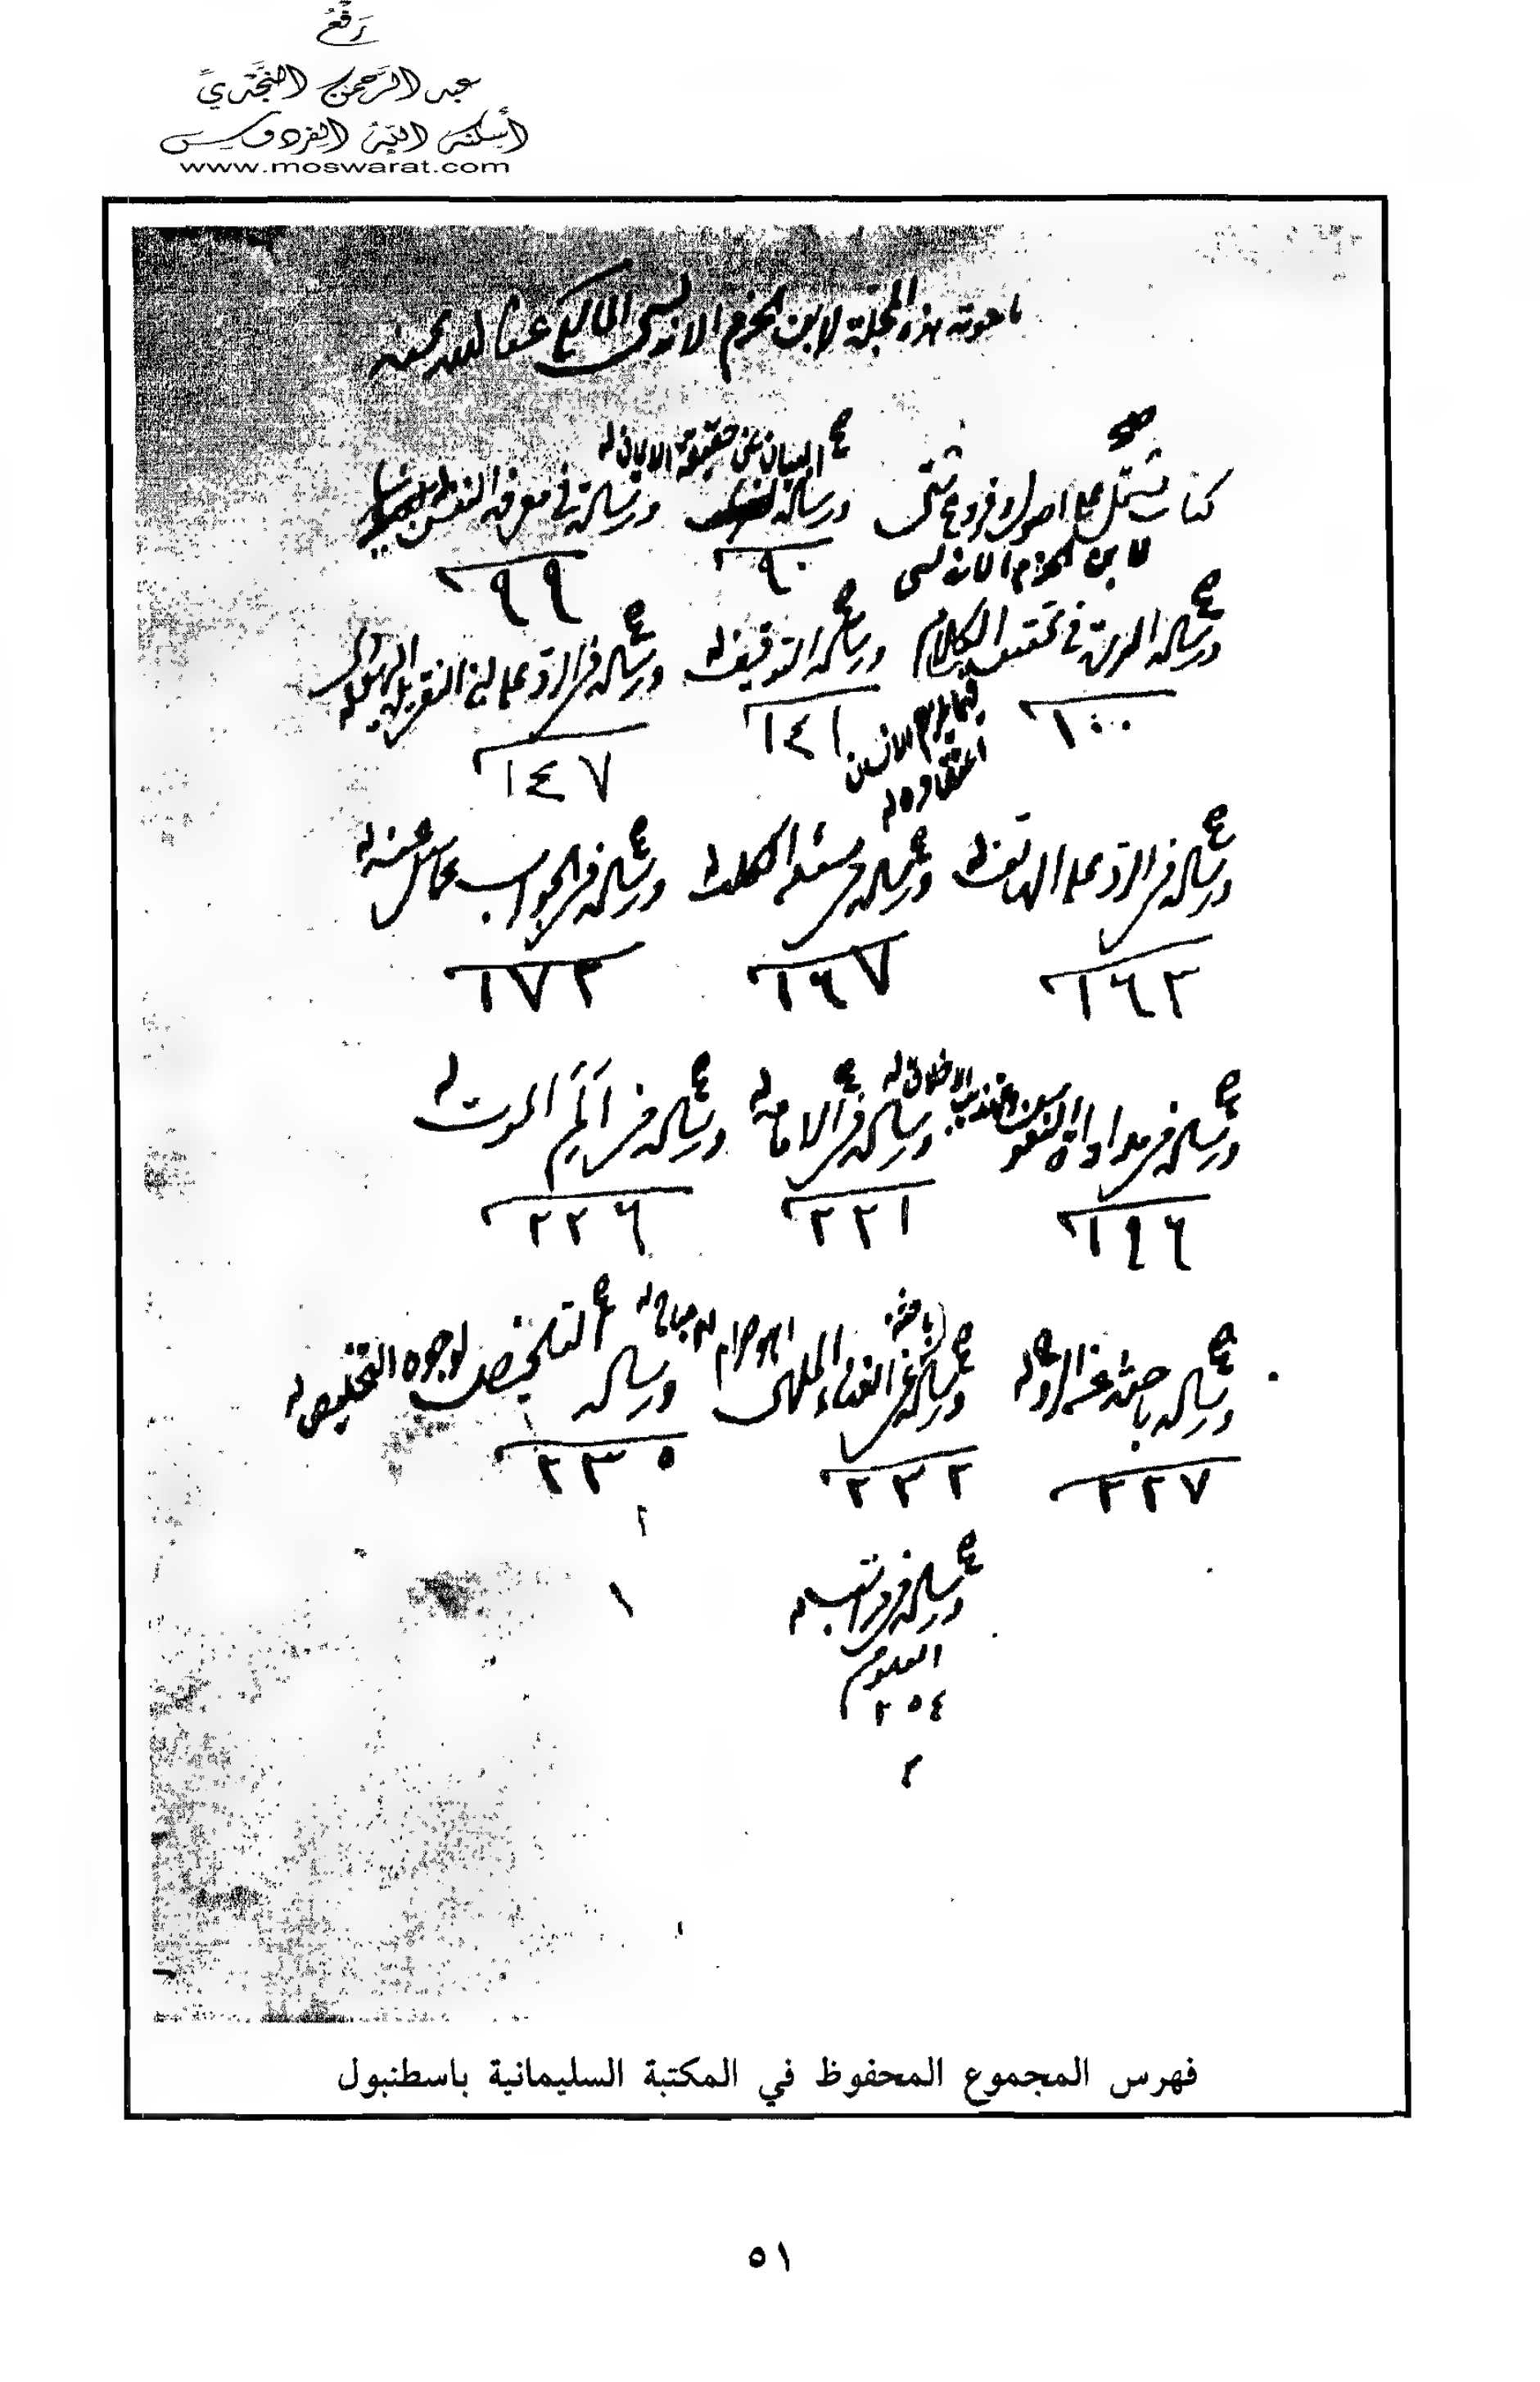 رَفْعُ
عبد الرَّحمن النَّجديِّ
أسكنه اللهُ الفردوس
www.moswarat.com
ما حوته هذه المجلة لابن الحزم الاندلسي المالكي عفا الله عنه
كتاب يشتمل على اصول وفروع شتى
لابن الحزم الاندلسي
ورسالة البيان عن حقيقة الايمان له
٩٠
ورسالة في معرفة النفس
٩٩
ورسالة الدرة في تحقيق الكلام
فيما يلزم الانسان
اعتقاده له
١٠٠
ورسالة التوقيف له
١٤١
ورسالة في الرد على ابن النغريلة اليهودي له
١٤٧
ورسالة في الرد على الهاتف له
١٦٣
ورسالة في مسئلة الكلب له
١٦٧
ورسالة في الجواب عما سئل عنه له
١٧٣
ورسالة في مداواة النفوس وتهذيب الاخلاق له
١٩٦
ورسالة في الامامة له
٢٢١
ورسالة في ألم الموت له
٢٢٦
ورسالة باحثة عن الروح له
٢٢٧
ورسالة باحثة عن الغناء الملهي اهو حرام ام مباح له
٢٣٢
ورسالة التلخيص لوجوه التخليص له
٢٣٥
ورسالة في مراتب العلوم له
٢٥٤
فهرس المجموع المحفوظ في المكتبة السليمانية باسطنبول
٥١